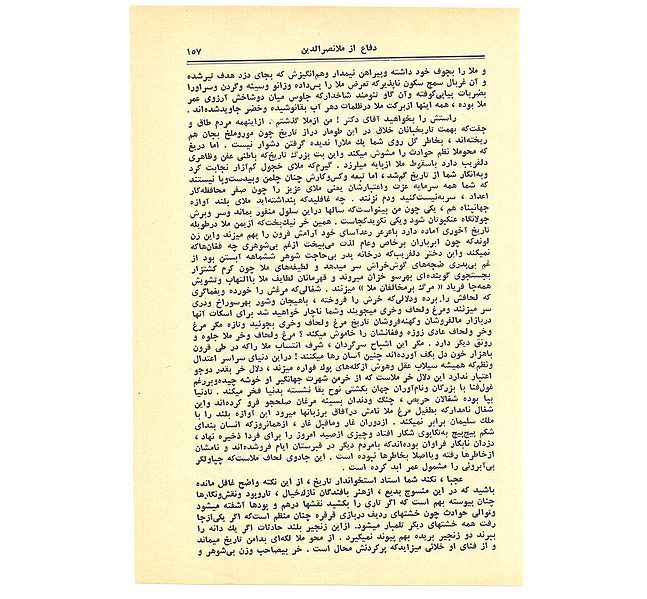 دفاع از ملانصرالدین ۱۵۷
و ملا را بچوف خود داشته وپیراهن نیمدار وهم‌انگیزش که بجای دزد هدف تیرشده
و آن غربال سمج سکون ناپذیرکه تعرض ملا را پس‌داده وزانو وسینه وگردن وسراورا
بضربات پیاپی‌کوفته وآن گاو تنومند شاخدارکه جلوس میان دوشاخش آرزوی عمر
ملا بوده ، همه اینها ازبرکت ملا درظلمات دهر آب بقانوشیده وخضر جاویدشده‌اند .
راستش را بخواهید آقای دکتر ! من ازملا گذشتم . ازاینهمه مردم طاق و
جفت‌که بهمت تاریخبانان خلاق در این طومار دراز تاریخ چون مورو‌ملخ بجان هم
ریخته‌اند ، بخاطر گل روی شما یك ملارا ندیده گرفتن دشوار نیست . اما دریغ
که محوملا نظم حوادث را مشوش میکند واین بت بزرك تاریخ‌که باطنی عفن وظاهری
دلفریب دارد باسقوط ملا ازپایه میلرزد . گیرم‌که ملای خجول کم‌آزار نجابت کرد
وبه‌انکار شما از تاریخ گم‌شد ، اما تبعه وکس‌وکارش چنان چلمن وبیدست‌وپا نیستند
که شما همه سرمایه عزت واعتبارشان یعنی ملای عزیز را چون صفر محافظه‌کار
اعداد ، سربه‌نیست‌کنید ودم نزنند . چه غافلیدکه پنداشته‌اید ملای بلند آوازه
جهانپناه هم ، یکی چون من بینواست‌که سالها دراین سلول منفور بماند وسر وبرش
جولانگاه عنکبوتان شود ویکی نگویدکجاست . همین خر نیك‌بخت‌که ازیمن ملا درطویله
تاریخ آخوری آماده دارد باعرعر رعدآسای خود آرامش قرون را بهم میزند واین زن
لوندکه چون ابرباران برخاص وعام لذت می‌بیخت ازغم بی‌شوهری چه فغان‌هاکه
نمیکند واین دختر دلفریب‌که درخانه پدر بی‌حاجت شوهر ششماهه آبستن بود از
غم بی‌پدری ضجه‌های گوش‌خراش سر میدهد و لطیفه‌های ملا چون کرم گشتزار
بجستجوی گوینده‌ای بهرسو خزان میروند و قهرمانان لطایف ملا باالتهاب وتشویش
همه‌جا فریاد « مرگ برمخالفان ملا » میزنند . شغالی‌که مرغش را خورده ویغماگری
که لحافش را برده ودلالی‌که خرش را فروخته ، باهیجان وشور بهرسوراخ ودری
سر میزنند ومرغ ولحاف وخری میجویند وشما ناچار خواهید شد برای اسکات آنها
دربازار مالفروشان وکهنه‌فروشان تاریخ مرغ ولحاف وخری بجوئید وتازه مگر مرغ
وخر ولحاف عادی زوزه وفغانشان را خاموش میکند ؟ مرغ ولحاف وخر ملا جلوه و
رونق دیگر دارد . مگر این اشباح سرگردان ، شرف انتساب ملا راکه در طی قرون
باهزار خون دل بکف آورده‌اند چنین آسان رها میکنند ! دراین دنیای سراسر اعتدال
ونظم‌که همیشه سیلاب عقل وهوش ازکله‌های پوك فواره میزند ، دلال خر بقدر دوجو
اعتبار ندارد این دلال خر ملاست که از خرمن شهرت جهانگیر او خوشه چیده‌وبرغم
غول‌فنا با بزرگان ونام‌آوران جهان بکشتی نوح بقا نشسته بدنیا فخر میکند . تادنیا
بپا بوده شغالان حریص ، چنك ودندان بسینه مرغان صلحجو فرو کرده‌اند واین
شغال نامدارکه بطفیل مرغ ملا نامش درآفاق برزبانها میرود این آوازه بلند را با
ملك سلیمان برابر نمیکند . ازدوران غار وماقبل غار ، ازهمانروزکه انسان بندای
شکم پیچ‌پیچ به‌تکاپوی شکار افتاد وچیزی ازصید امروز را برای فردا ذخیره نهاد ،
دزدان نابکار فراوان بوده‌اندکه بامردم دیگر در قبرستان ایام فروشده‌اند و نامشان
ازخاطرها رفته وبااصلا بخاطرها نبوده است . این جادوی لحاف ملاست‌که چپاولگر
بی‌آبروئی را مشمول عمر ابد کرده است .
عجبا ، نکند شما استاد استخواندار تاریخ ، از این نکته واضح غافل مانده
باشید که در این منسوج بدیع ، ازهنر بافندگان نازك‌خیال ، تاروپود ونقش‌ونگارها
چنان بپیوسته بهم است که اگر تاری را بکشید نقشها درهم و پودها آشفته میشود
وتوالی حوادث چون خشتهای ردیف دربازی قرقره چنان منظم است‌که اگر یکی‌ازجا
رفت همه خشتهای دیگر تلمبار میشود. ازاین زنجیر بلند حادثات اگر یك دانه را
ببرند دو زنجیر بریده بهم پیوند نمیگیرد . از محو ملا لکه‌ای بدامن تاریخ میماند
و از فنای او خلائی میزایدکه پرکردنش محال است . خر بیصاحب وزن بی‌شوهر و